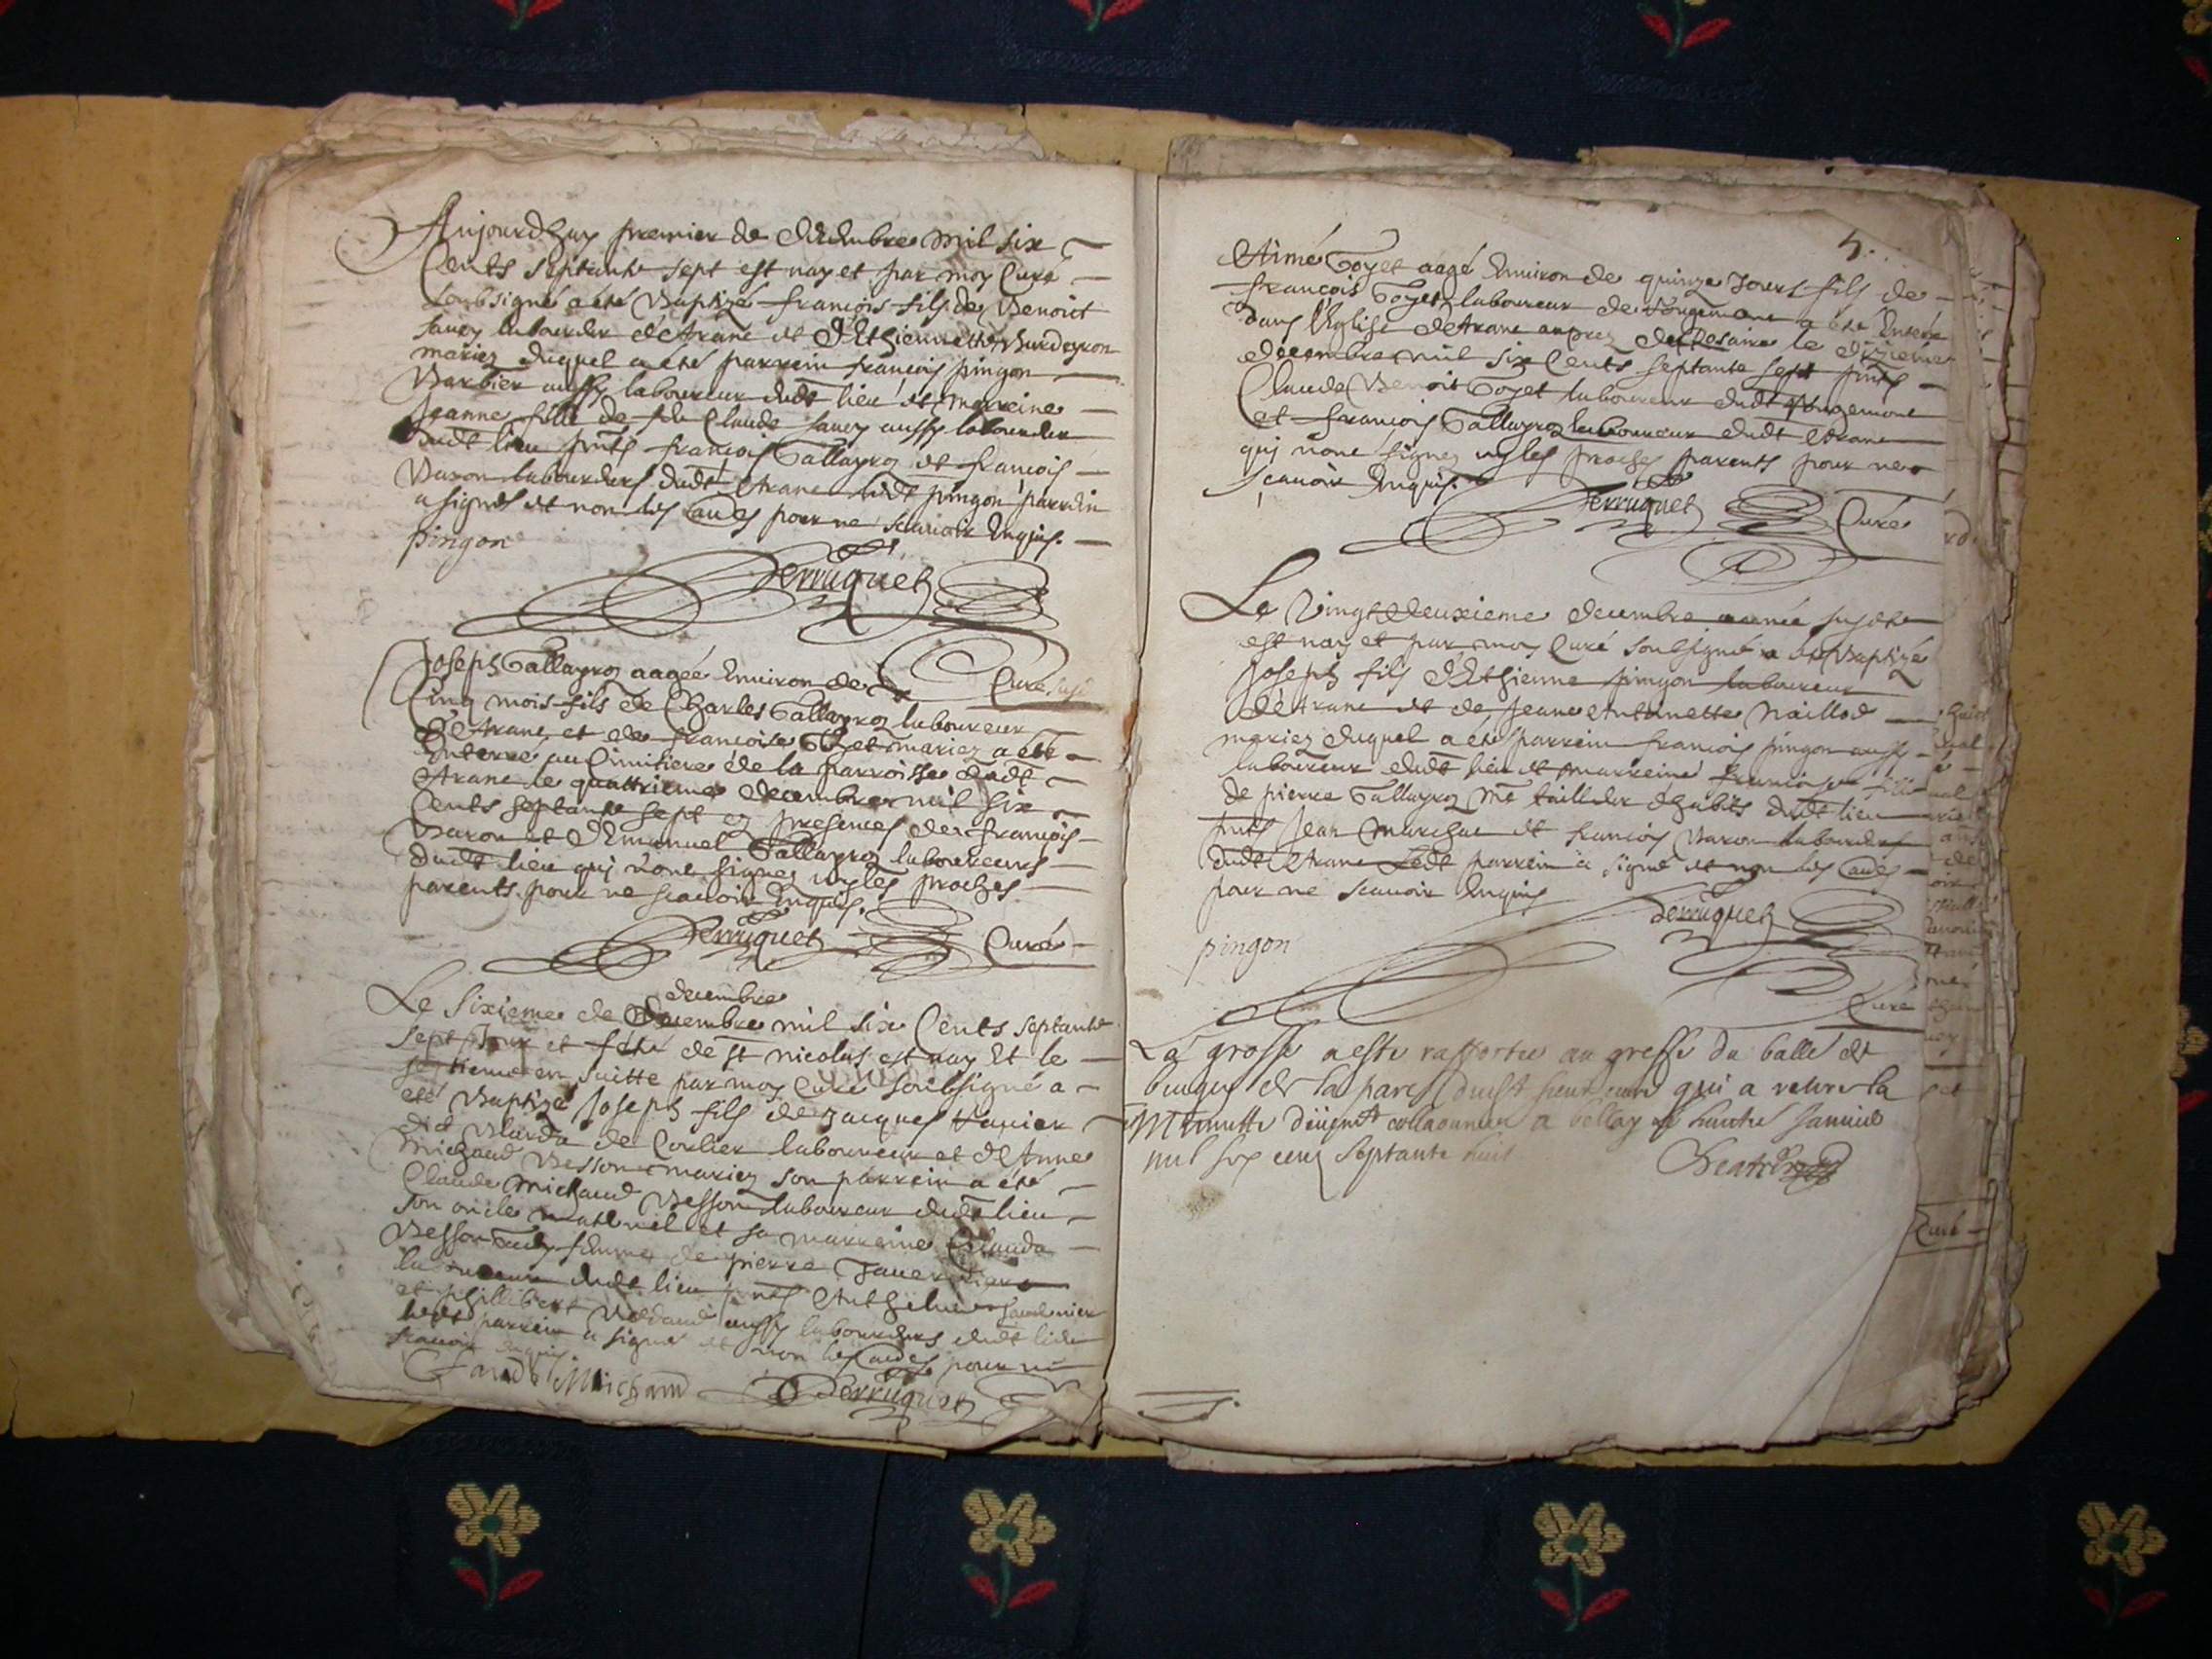 Aujourdhuy premier de decembre mil six
Cents septante sept est nay et par moy Curé
soubsigné a eté Baptizé françois fils de Benoict
laboureur d'Arane et d'Ethiennette
mariez duquel a eté parrein françois pingon
Barbier aussy laboureur dudt lieu et marreine
Jeanne fille de feu Claude aussy laboureur
dudt lieu pnts françois Tallagrog et françois
Baron laboureurs dudt Arane ledt pingon parrein
a signé et non les autres pour ne scavoir Enquis.
pingon
Perruquet
Curé
Joseph Tallagrog aagée Environ de
Cinq mois fils de Charles Tallagrog laboureur
d'Arane et de françoise mariez a eté
Enterré au Cimitiere de la parroisse dudt
Arane le quattrieme decembre mil six
Cents septante sept en presence de françois
Baron et d'Emanuel Tallagrog laboureurs
dudt lieu qui n'ont signez ny les proches
parents pour ne scavoir Enquis.
Perruquet Curé
decembre
Le sixieme de decembre mil six Cents septante
sept Jour et fete de st nicolas est nay Et le
septieme en suitte par moy Curé soubsigné a
eté Baptizé Joseph fils de Jacques
dict de Corlier laboureur et d'Anne
Michaud Besson mariez son parrein a eté
Claude Michaud Besson laboureur dudt lieu
son oncle maternel et sa marreine Claude
Besson femme de pierre
laboureur dudt lieu pnts Anthelme
et phillibert aussy laboureurs dudt lieu
ledt parrein a signé et non les autres pour ne
scavoir Enquis.
Claude Michaud Perruquet
5.
Aimé Goyet aagé Environ de quinze Jours fils de
françois Goyet laboureur de Rougemont a eté Enterré
dans l'Eglise d'Arane aupres du Rosaire le dixieme
decembre mil six Cents septante sept pnts
Claude Benoit Goyet laboureur dudt Rougemont
et françois Tallagrog laboureur dudt Arane
qui n'ont signez ny les proches parents pour ne
scavoir Enquis.
Perruquet Curé
Le Vingtdeuxieme decembre année susdte
est nay et par moy Curé soubsigné a eté Baptizé
Joseph fils d'Ethienne pingon laboureur
d'Arane et de Jeane Antonette
mariez duquel a eté parrein françois pingon aussy
laboureur dudt lieu et marreine françoise fille
de pierre Tallagrog me tailleur d'habits dudt lieu
pnts Jean et françois Baron laboureurs
dudt Arane Ledt parrein a signé et non les autres
pour ne scavoir Enquis
pingon
Perruquet
Curé
La grosse a esté rapportee au greffe du
bugey de la part dudit sieur curé qui a retiré la
Minutte a bellay ce janvier
mil six cens septante huit
Curé